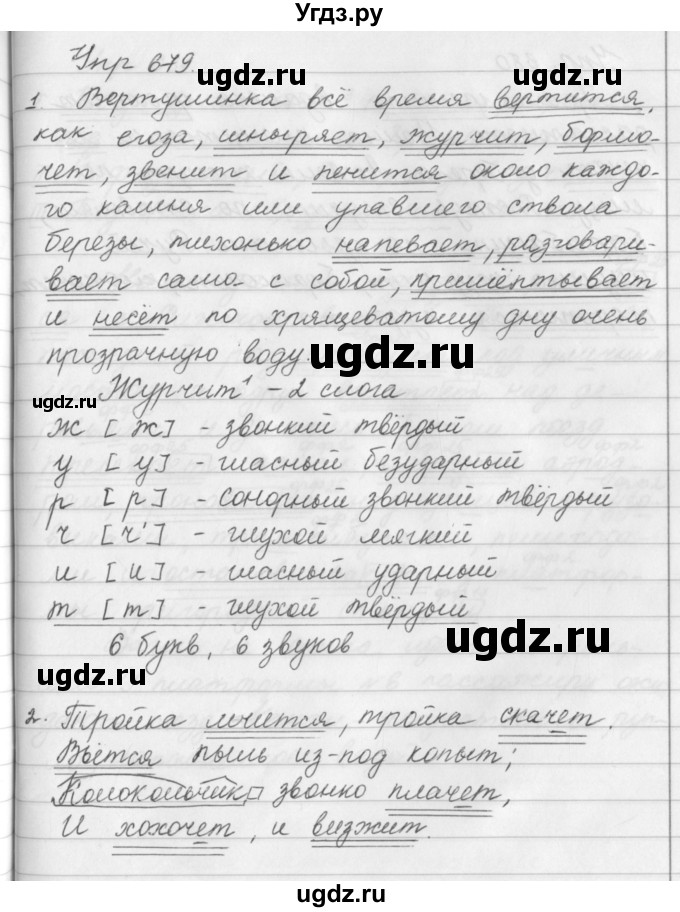 УгдЗ.ру
Упр 679.
ugdz.ru
ugdz.ru
1. Вертушинка всё время вертится,
как егоза, шныряет, журчит, бормо-
чет, звенит и пенится около каждо-
го камня или упавшего ствола
березы, тихонько напевает, разговари-
вает сама с собой, пришёптывает
и несёт по хрящеватому дну очень
прозрачную воду
ugdz.ru
ugdz.ru
Журчит – 2 слога
ж [ ж ] – звонкий твёрдый
у [ у ] – гласный безударный
р [ р ] – сонорный звонкий твёрдый
ч [ч'] – глухой мягкий
и [ и ] – гласный ударный
т [ т ] – глухой твёрдый
6 букв, 6 звуков
ugdz.ru
ugdz.ru
2. Тройка мчится, тройка скачет,
Вьётся пыль из-под копыт;
Колокольчик звонко плачет,
И хохочет, и визжит.
ugdz.ru
ugdz.ru
ugdz.ru
ugdz.ru